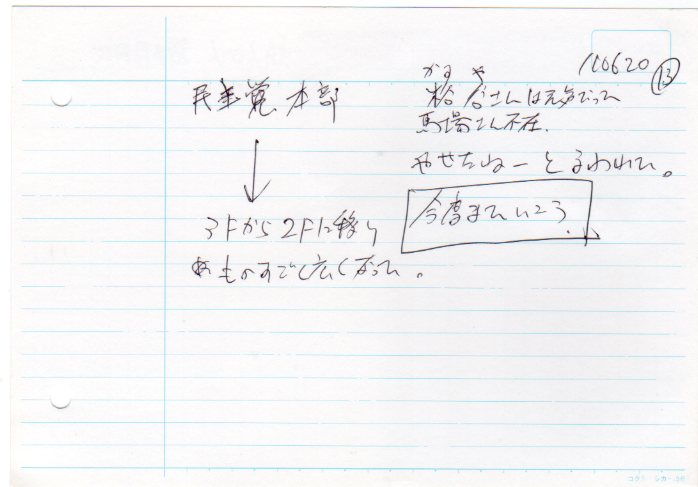 110620 ⑬
民主党本部
↓
3Fから2Fに移り
ものすごく広くなって。
かすや
粕谷さんは元気だって
馬場さん不在.
やせたねーと言われて。
今度またいこう